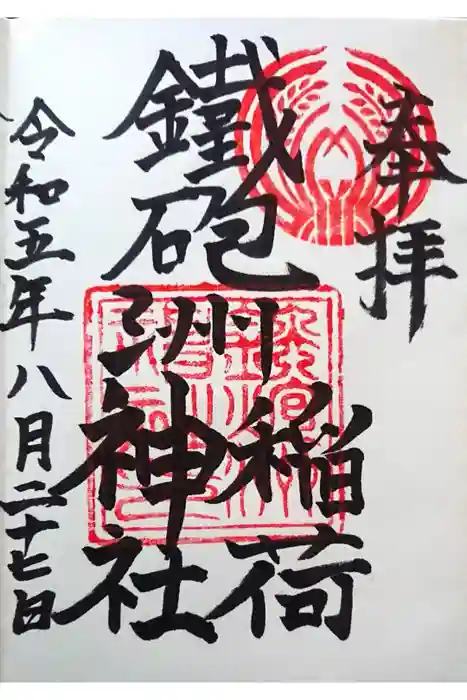 奉拝
鐵砲洲稲荷神社
令和五年八月二十七日